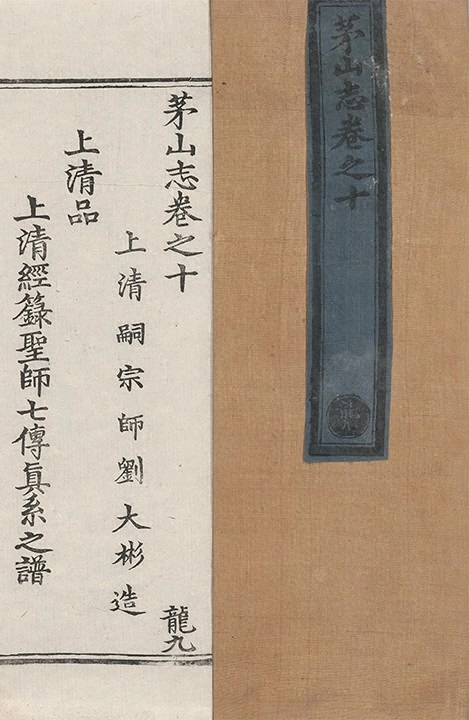 茅山志卷之十
龍九
茅山志卷之十
龍九
上清嗣宗師劉大彬造
上清品
上清經籙聖師七傳真系之譜